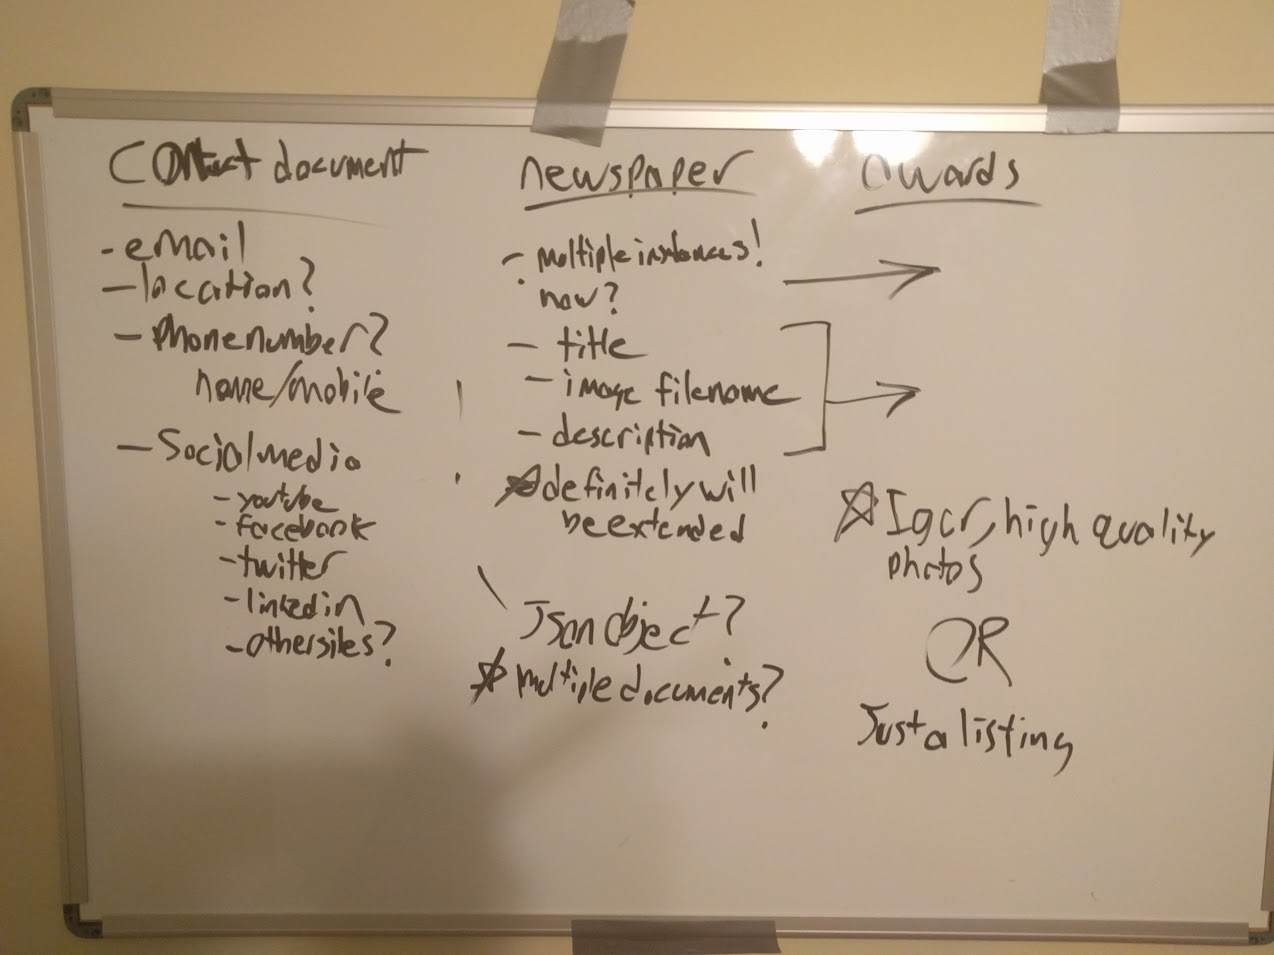 Contact document
- email
- location?
- Phone number?
home/mobile
- Social media
- youtube
- facebook
- twitter
- linkedin
- other sites?
newspaper
- multiple instances!
how?
- title
- image filename
- description
☆ definitely will
be extended
Json object?
☆ multiple documents?
awards
☆ high quality
photos
OR
Just a listing